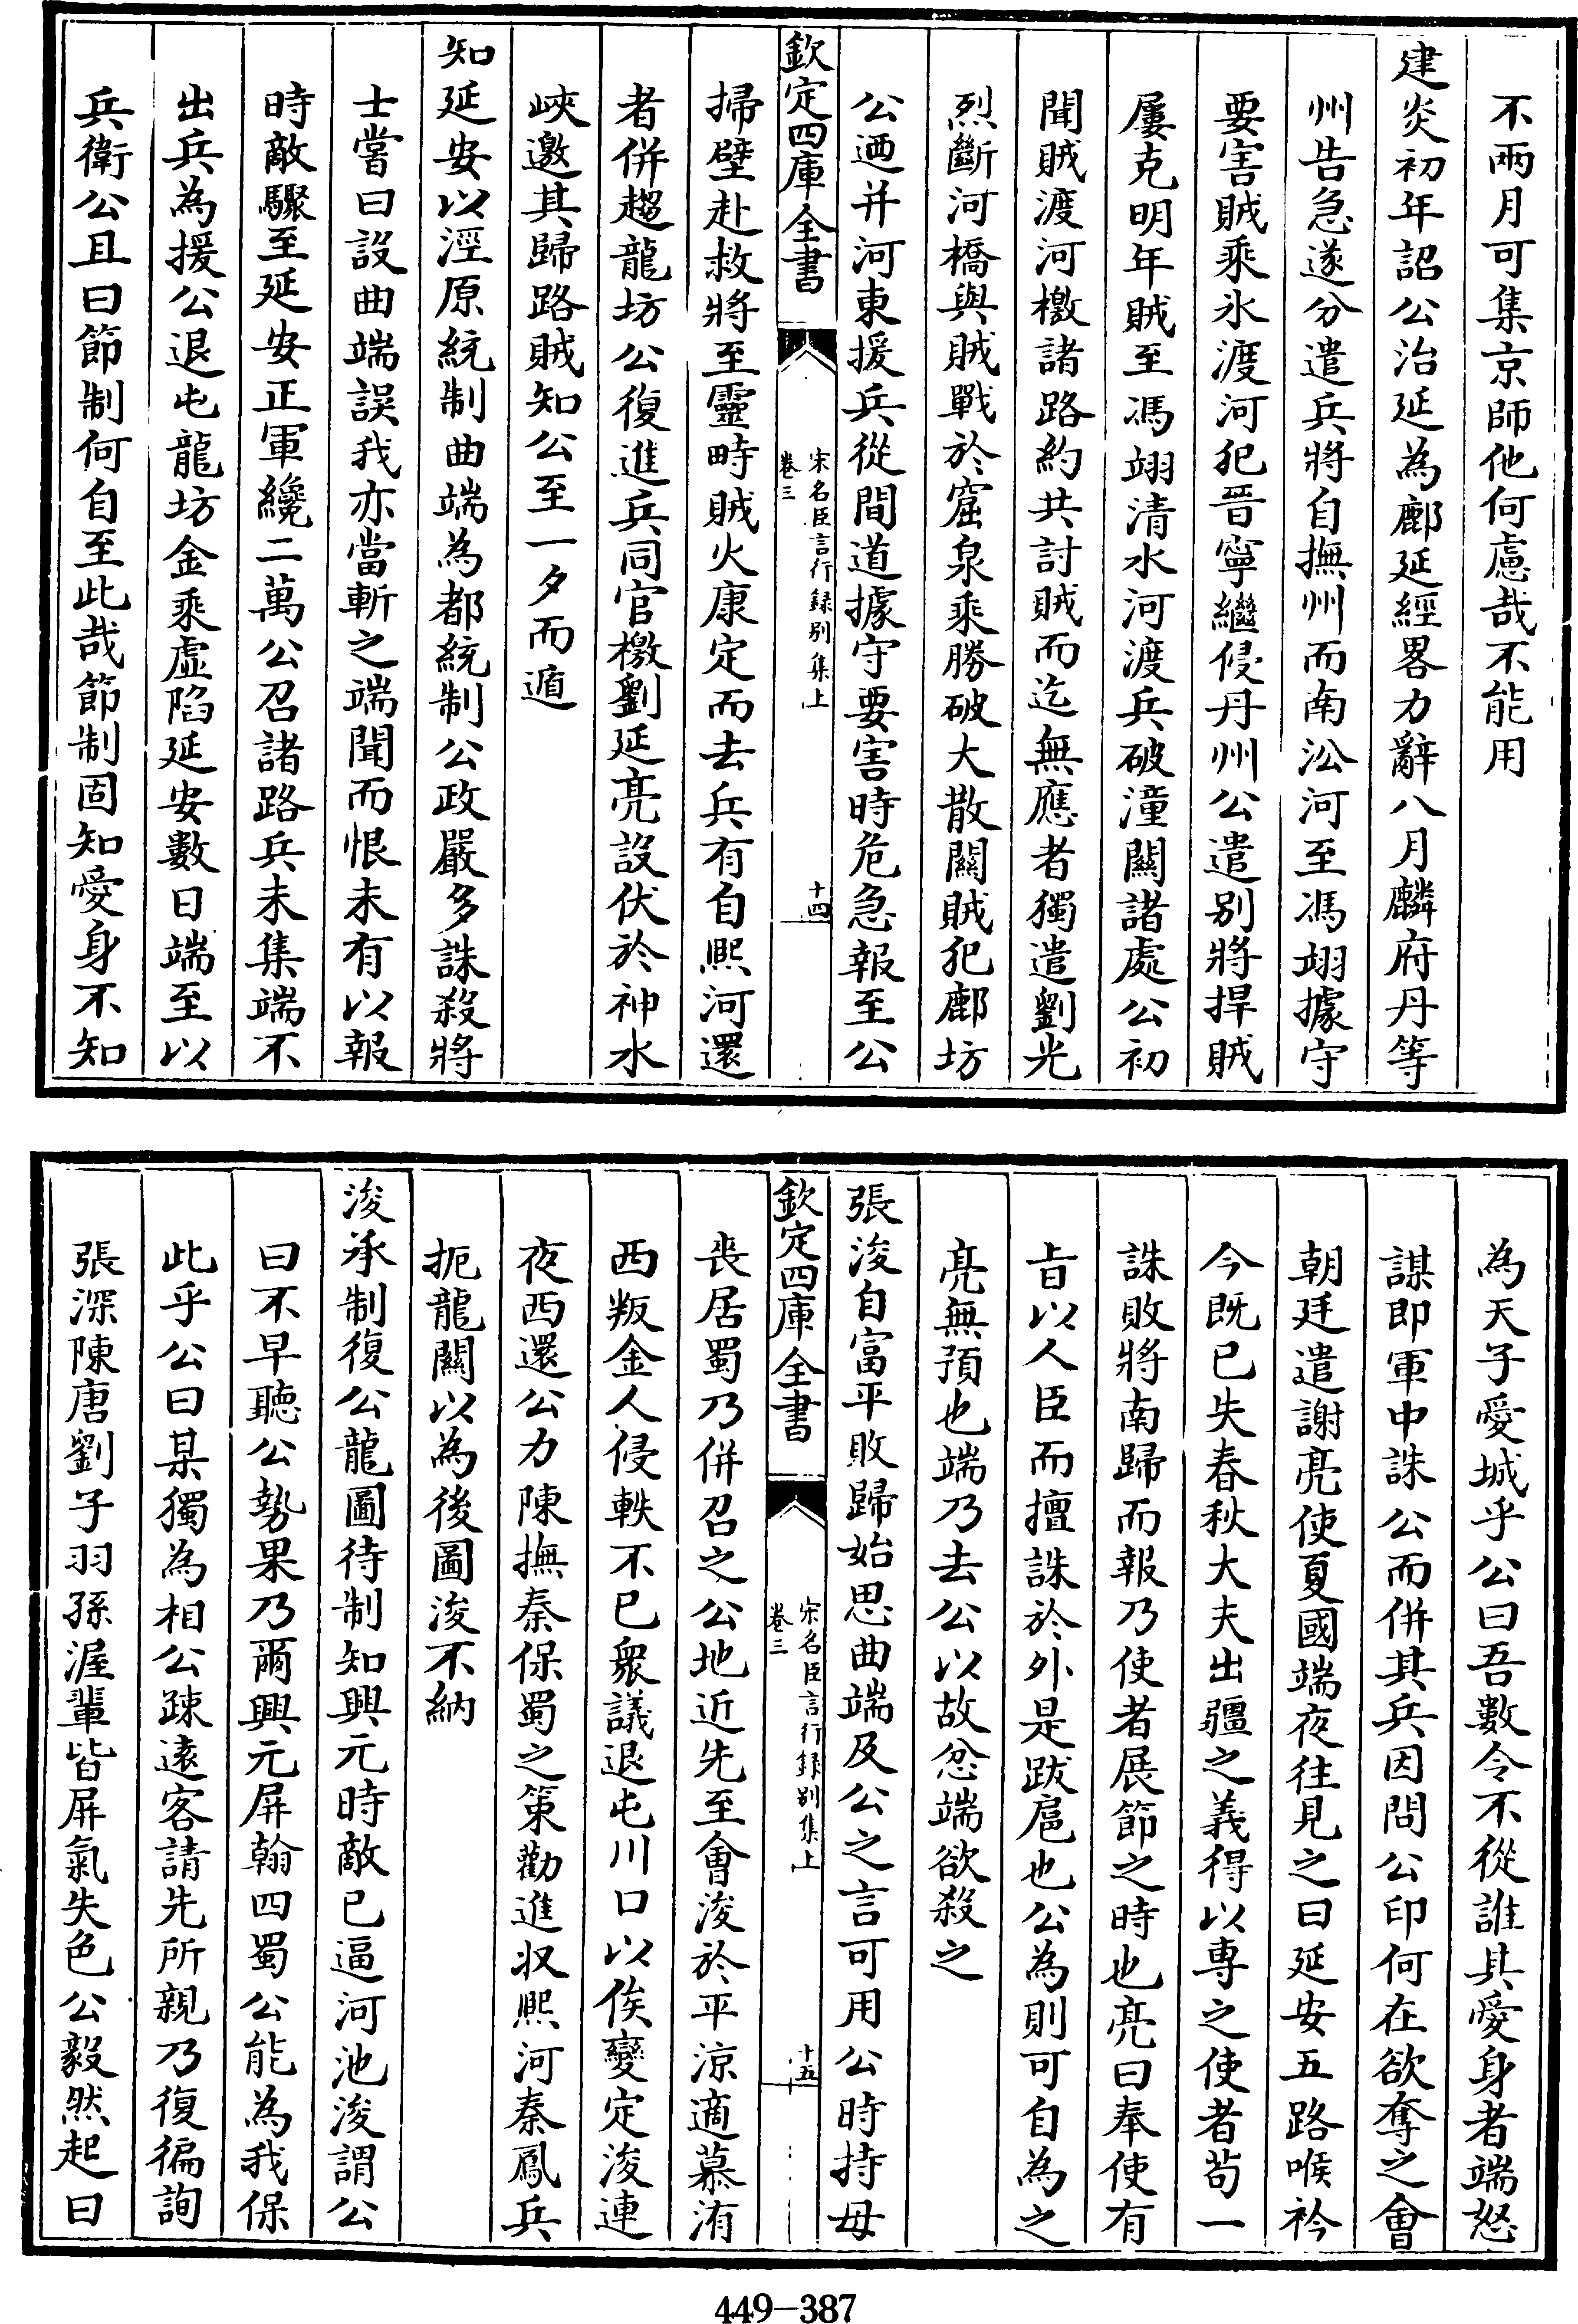 不兩月可集京師他何慮哉不能用
建炎初年詔公治延為鄜延經畧力辭八月麟府丹等
州告急遂分遣兵將自撫州而南㳂河至馮翊據守
要害賊乘氷渡河犯晉寧繼侵丹州公遣别將捍賊
屢克明年賊至馮翊清水河渡兵破潼關諸處公初
聞賊渡河檄諸路約共討賊而迄無應者獨遣劉光
烈斷河橋與賊戰於窟泉乘勝破大散關賊犯鄜坊
公迺并河東援兵從間道據守要害時危急報至公
欽定四庫全書
宋名臣言行録别集上
卷三
十四
掃壁赴救將至靈畤賊火康定而去兵有自熙河還
者併趨龍坊公復進兵同官檄劉延亮設伏於神水
峽邀其歸路賊知公至一夕而遁
知延安以涇原統制曲端為都統制公政嚴多誅殺將
士嘗曰設曲端誤我亦當斬之端聞而恨未有以報
時敵驟至延安正軍纔二萬公召諸路兵未集端不
出兵為援公退屯龍坊金乘虛陷延安數日端至以
兵衛公且曰節制何自至此哉節制固知愛身不知
為天子愛城乎公曰吾數令不從誰其愛身者端怒
謀即軍中誅公而併其兵因問公印何在欲奪之會
朝廷遣謝亮使夏國端夜往見之曰延安五路喉衿
今既已失春秋大夫出疆之義得以専之使者苟一
誅敗將南歸而報乃使者展節之時也亮曰奉使有
㫖以人臣而擅誅於外是跋扈也公為則可自為之
亮無預也端乃去公以故忿端欲殺之
張浚自富平敗歸始思曲端及公之言可用公時持母
欽定四庫全書
宋名臣言行録别集上
卷三
十五
喪居蜀乃併召之公地近先至會浚於平涼適慕洧
西叛金人侵軼不已衆議退屯川口以俟變定浚連
夜西還公力陳撫秦保蜀之策勸進収熙河秦鳳兵
扼龍關以為後圖浚不納
浚承制復公龍圖待制知興元時敵已逼河池浚謂公
曰不早聽公勢果乃爾興元屏翰四蜀公能為我保
此乎公曰某獨為相公疎逺客請先所親乃復徧詢
張深陳唐劉子羽孫渥輩皆屏氣失色公毅然起曰
449-387